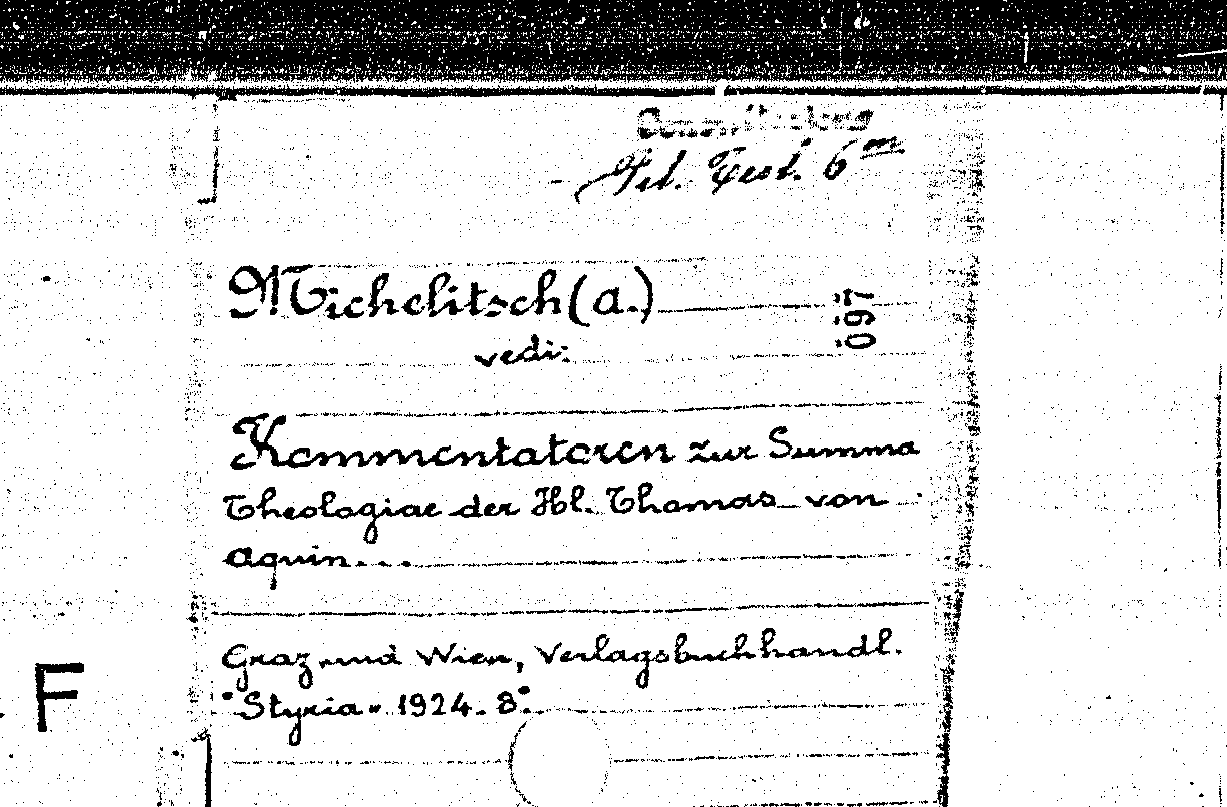 Consultazione
Fil. Test. 6m
Michelitsch (a.)
097
vedi:
Kommentatoren zur Summa
Theologiae der Hl. Thomas von
aquin...
Graz und Wien, Verlagsbuchhandl.
"Styria" 1924. 8°.
F